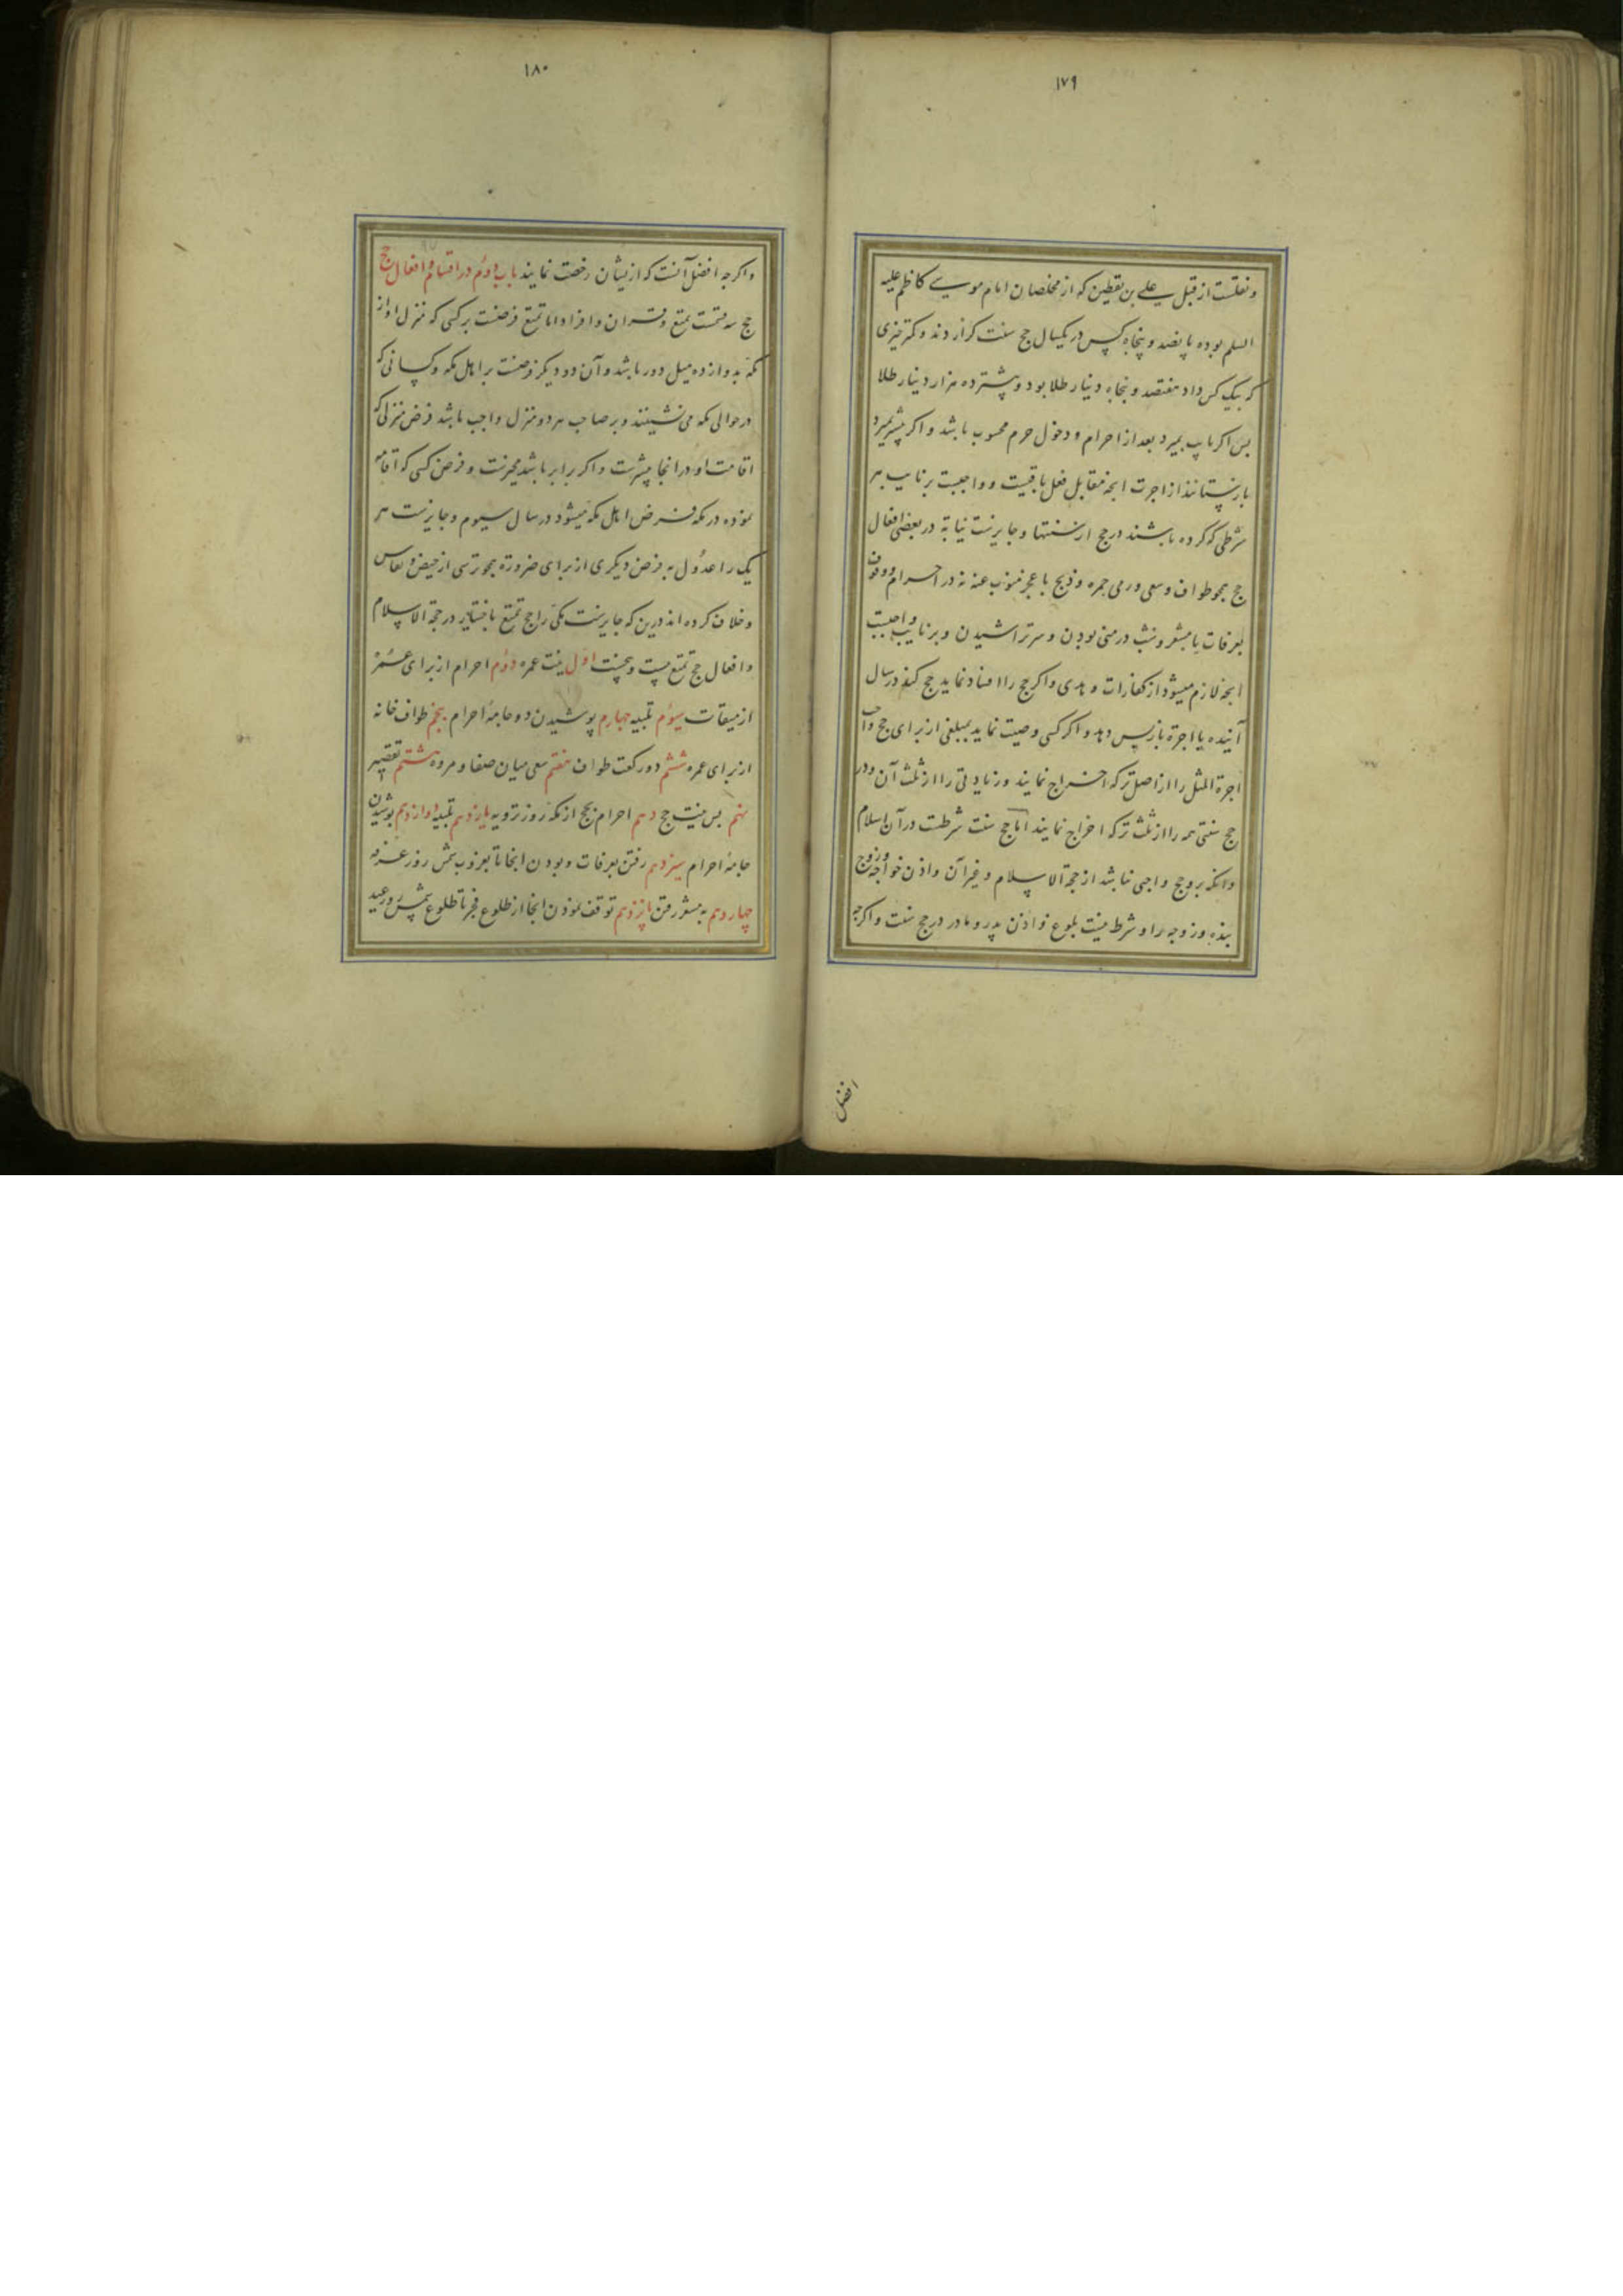 ۱۷۹
و نقلست از قبل علی بن یقطین که از مخلصان امام موسی کاظم علیه
السلم بوده پانصد و پنجاه کس در یکسال حج سنت کزاردند و کمتر چیزی
که بیک کس داد هفتصد و پنجاه دینار طلا بود و بیشتر ده هزار دینار طلا
بس اکر نایب بمیرد بعد از احرام و دخول حرم محسوب باشد و اکر پیشتر بمیرد
بازستانند از اجرت انچه مقابل فعل باقیست و واجبست بر نایب هر
شرطی که کرده باشند در حج از سنتها و جایزست نیابة در بعضی افعال
حج بجو طواف و سعی و رمی جمره و ذبح با عجز منوب عنه نه در احرام و وقوف
بعرفات یا مشعر و شب در منی بودن و سر تراشیدن و بر نایب واجبست
انچه لازم میشود از کفارات و هدی و اکر حج را افساد نماید حج کند در سال
آینده یا اجرة باز پس دهد و اکر کسی وصیت نماید بمبلغی از برای حج واجب
اجرة المثل را از اصل ترکه اخراج نمایند و زیادتی را از ثلث آن و در
حج سنتی همه را از ثلث ترکه اخراج نمایند اما حج سنت شرطست در آن اسلام
و انکه برو حج واجبی نباشد از حجة الاسلام و غیر آن و اذن خواجه و زوج
بنده و زوجه را و شرط نیست بلوغ و اذن پدر و مادر در حج سنت و اکرجه
افضل
۱۸۰
و اکرجه افضل آنست که از یشان رخصت نمایند باب دوم در اقسام و افعال حج
حج سه قسمست تمتع و قران و افراد اما تمتع فرضست بر کسی که منزل او از
مکه بدوازده میل دور باشد و آن دو دیکر فرضست بر اهل مکه و کسانی که
در حوالی مکه می نشینند و بر صاحب هر دو منزل واجب باشد فرض منزلی که
اقامت او در انجا بیشترست و اکر برابر باشد مخیرست و فرض کسی که اقامه
نموده در مکه فرض اهل مکه میشود در سال سیوم و جایزست هر
یک را عدول به فرض دیکری از برای ضرورة بجو ترسی از حیض و نفاس
و خلاف کرده اند درین که جایزست مکی را حج تمتع باختیار در حجة الاسلام
و افعال حج تمتع بیست و پنجست اول نیت عمره دوم احرام از برای عمره
از میقات سیوم تلبیه چهارم پوشیدن دو جامهٔ احرام پنجم طواف خانه
از برای عمره ششم دو رکعت طواف هفتم سعی میان صفا و مروه هشتم تقصیر
نهم بس نیت حج دهم احرام بحج از مکه روز ترویه یازدهم تلبیه دوازدهم پوشیدن
جامهٔ احرام سیزدهم رفتن بعرفات و بودن انجا تا بغروب شمس روز عرفه
چهاردهم به مشعر رفتن پانزدهم توقف نمودن انجا از طلوع فجر تا طلوع شمس روز عید